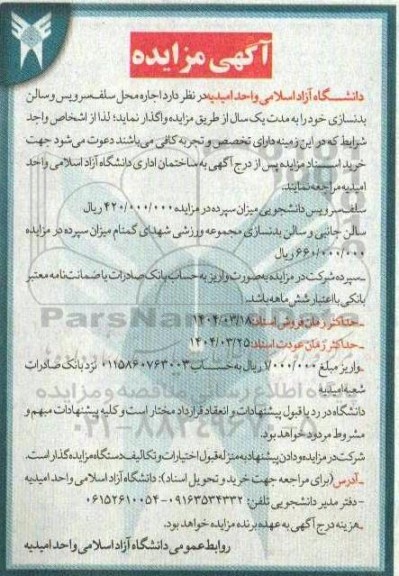 آگهی مزایده
دانشگاه آزاد اسلامی واحد امیدیه در نظر دارد اجاره محل سلف سرویس و سالن
بدنسازی خود را به مدت یک سال از طریق مزایده واگذار نماید؛ لذا از اشخاص واجد
شرایط که در این زمینه دارای تخصص و تجربه کافی می‌باشند دعوت می‌شود جهت
خرید اسناد مزایده پس از درج آگهی به ساختمان اداری دانشگاه آزاد اسلامی واحد
امیدیه مراجعه نمایند.
سلف سرویس دانشجویی میزان سپرده در مزایده ۴۲۰/۰۰۰/۰۰۰ ریال
سالن جانبی و سالن بدنسازی مجموعه ورزشی شهدای گمنام میزان سپرده در مزایده
۶۶۰/۰۰۰/۰۰۰ ریال
_سپرده شرکت در مزایده به‌صورت واریز به حساب بانک صادرات یا ضمانت‌نامه معتبر
بانکی با اعتبار شش ماهه باشد.
_حداکثر زمان فروش اسناد: ۱۴۰۴/۰۳/۱۸
_حداکثر زمان عودت اسناد: ۱۴۰۴/۰۳/۲۵
_واریز مبلغ ۱/۰۰۰/۰۰۰ ریال به حساب ۰۱۱۵۸۶۰۷۶۳۰۰۳ نزد بانک صادرات
شعبه امیدیه
دانشگاه در رد یا قبول پیشنهادات و انعقاد قرارداد مختار است و کلیه پیشنهادات مبهم و
مشروط مردود خواهد بود.
شرکت در مزایده و دادن پیشنهاد به منزله قبول اختیارات و تکالیف دستگاه مزایده گذار است.
_آدرس (برای مراجعه جهت خرید و تحویل اسناد): دانشگاه آزاد اسلامی واحد امیدیه
- دفتر مدیر دانشجویی تلفن: ۰۹۱۶۳۵۳۴۳۳۲-۰۶۱۵۲۶۱۰۰۵۴
_هزینه درج آگهی به عهده برنده مزایده خواهد بود.
روابط عمومی دانشگاه آزاد اسلامی واحد امیدیه